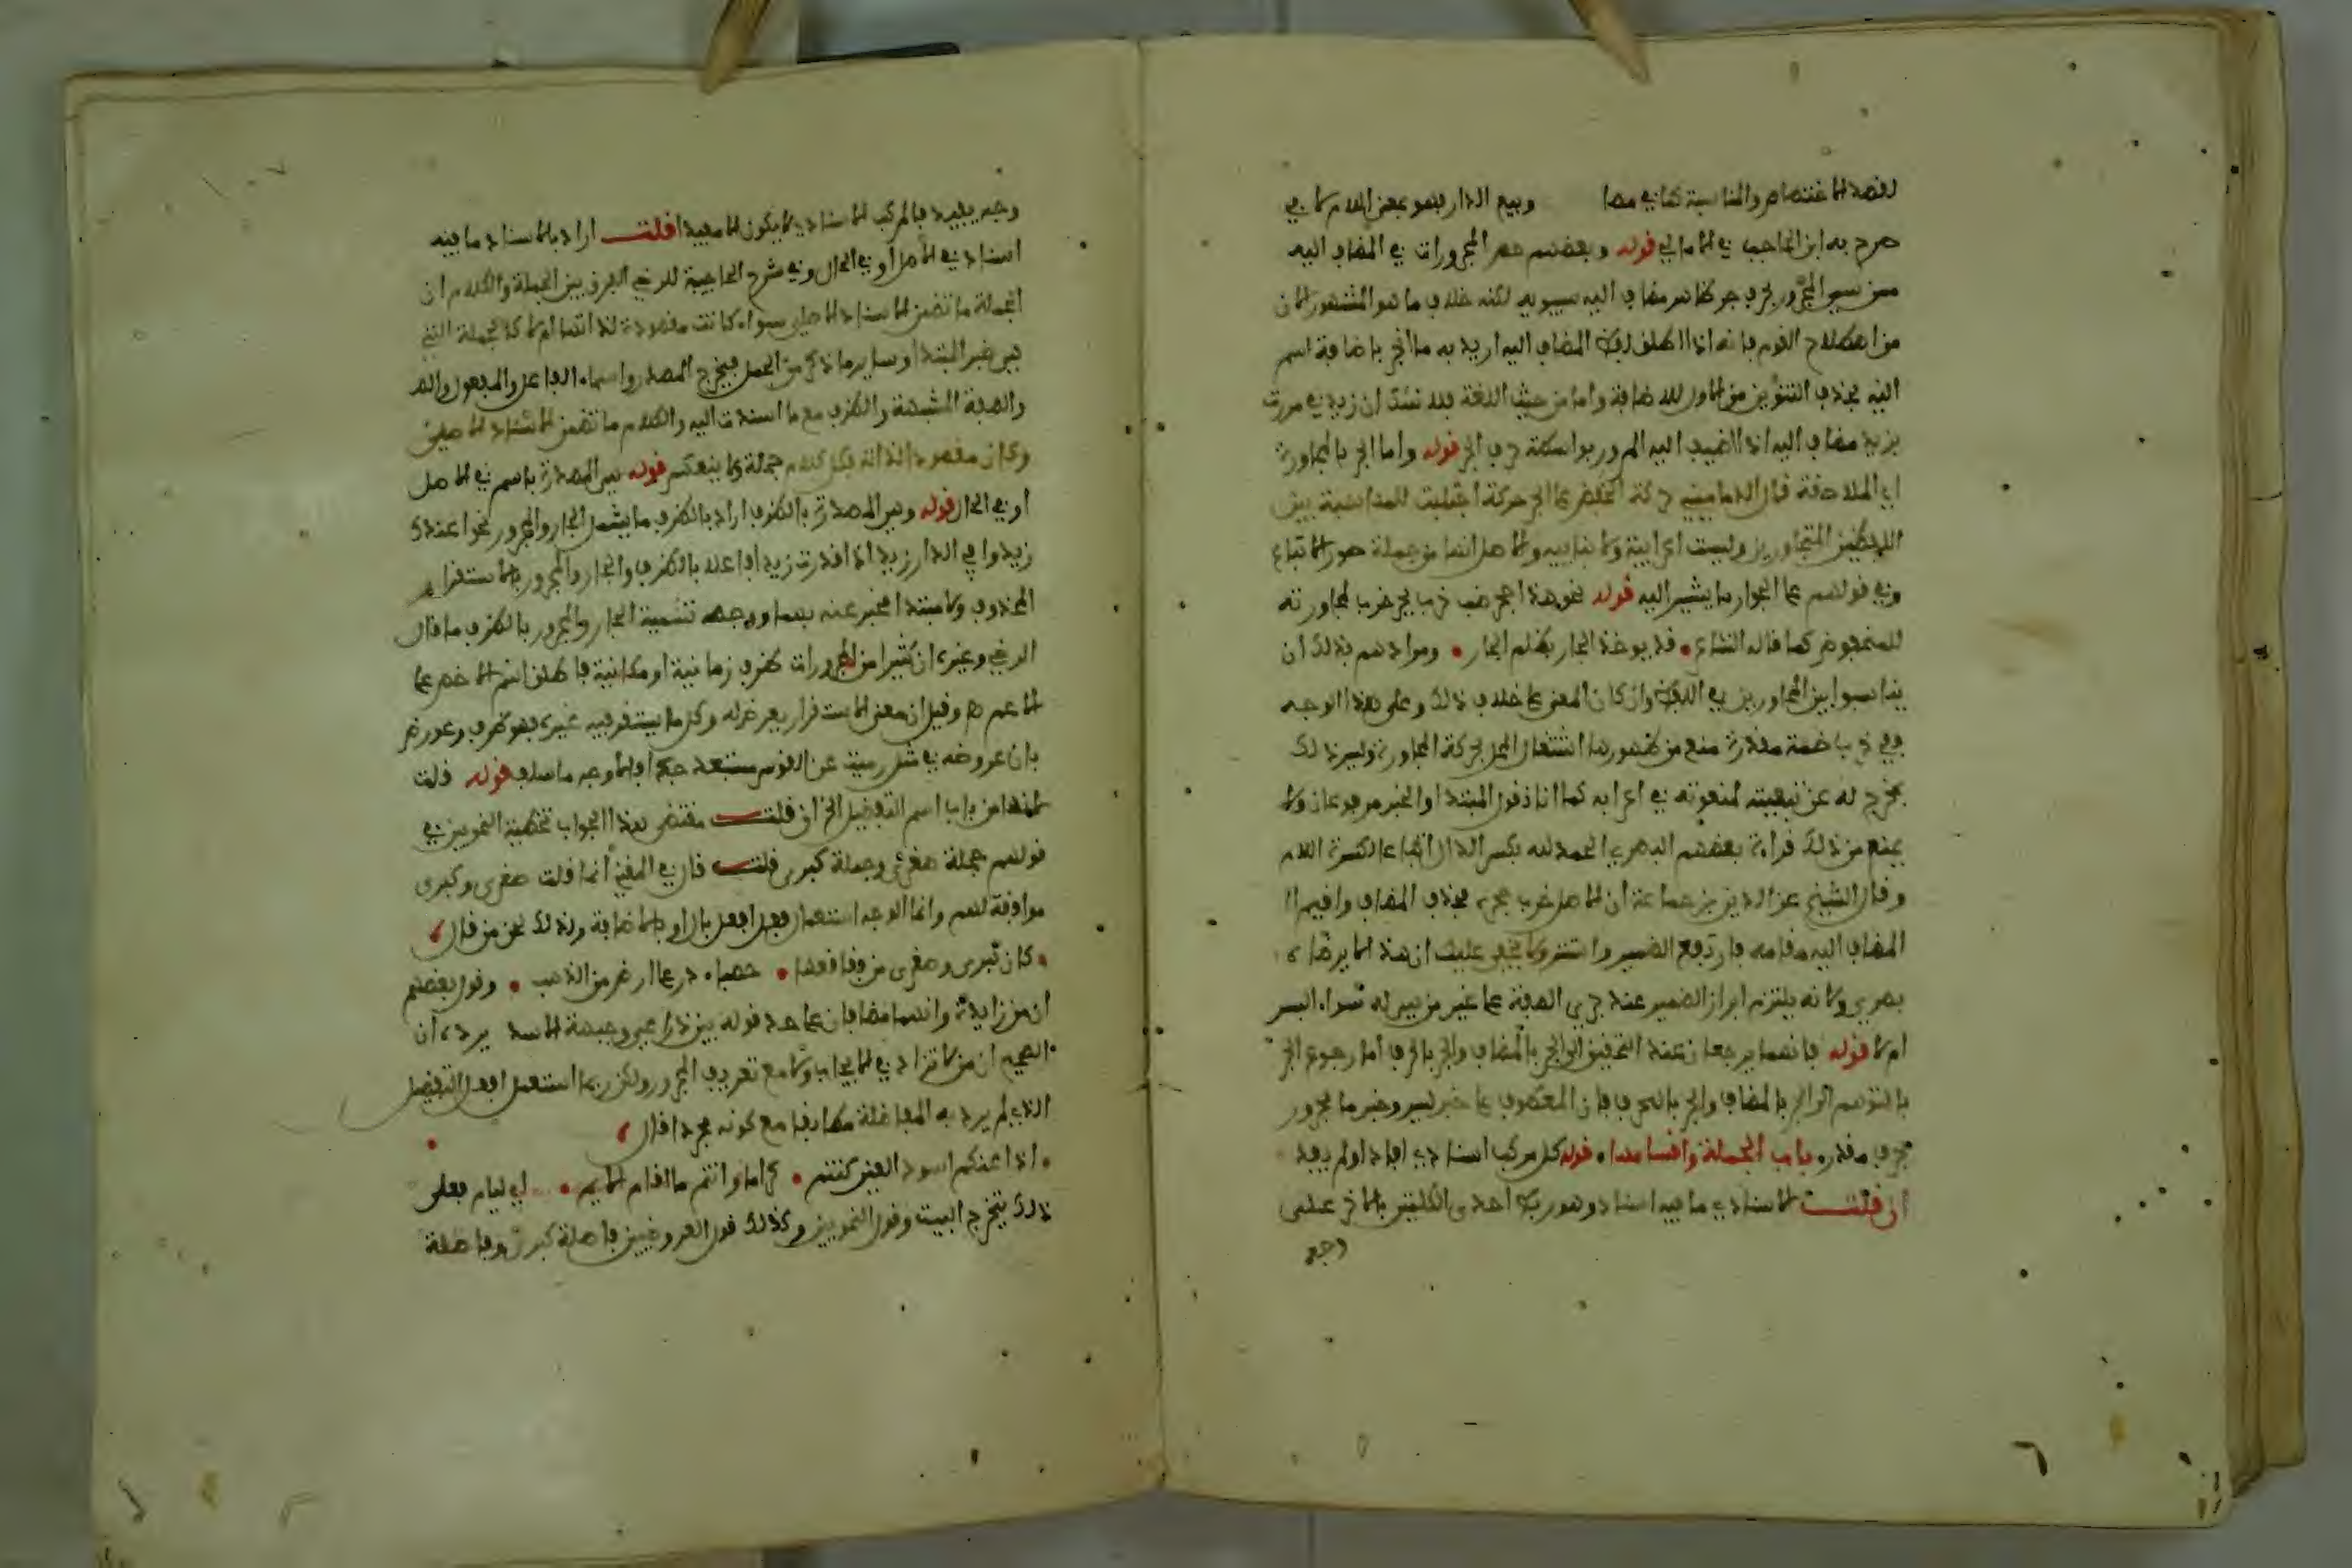 لقصد الاختصاص والمناسبة كما في مصا وبيع الدار فهو بمعنى اللام كما في
صرح به ابن الحاجب في الامالي قوله وبعضهم حصر المجرورات في المضاف اليه
المجرور بحرف جر ظاهر مضاف اليه سيبويه لكنه خلاف ما هو المشهور الان
من اصطلاح القوم فانه اذا اطلق لفظ المضاف اليه اريد به ما انجر باضافة اسم
اليه بحذف التنوين من الاول للاضافة واما من حيث اللغة فلا شك ان زيد في مررت
بزيد مضاف اليه اذ اضيف اليه المرور بواسطة حرف الجر قوله واما الجر بالمجاورة
اي الملاصقة قال الدماميني حركة اجتلبت للمناسبة بين
اللفظين المتجاورين وليست اعرابية ولا بنائية
وفي قولهم على الجوار ما يشير اليه قوله نحو هذا جحر ضب خرب بجر خرب لمجاورته
للمخفوض كما قال الشاعر • قد يوخذ الجار بظلم الجار • ومرادهم بذلك ان
يناسبوا بين المتجاورين في اللفظ وان كان المعنى على خلاف ذلك وعلى هذا الوجه
ففي خرب ضمة مقدرة منع من ظهورها اشتغال المحل بحركة المجاورة وليس ذلك
بمخرج له عن تبعيته لمنعوته في اعرابه كما انا نقول المبتدا والخبر مرفوعان ولا
يمنع من ذلك قراءة بعضهم البصري الحمد لله بكسر الدال اتباعا لكسرة اللام
وقال الشيخ عز الدين بن جماعة ان الاصل خرب جحره بحذف المضاف واقيم ا
المضاف اليه مقامه فارتفع الضمير واستتر ولا يخفى عليك ان هذا لا يرضاه
بصري لانه يلتزم ابراز الضمير عند جري الصفة على غير من هي له سواء البس
ام لا قوله فانهما يرجعان عند التحقيق الى الجر بالمضاف والجر بالحرف اما رجوع الجر
بالتوهم الى الجر بالمضاف والجر بالحرف فان المعطوف على خبر ليس وخبر ما مجرور
بحرف مقدر • باب الجملة واقسامها • قوله كل مركب اسنادي افاد او لم يفد
ان قلت الاسنادي ما فيه اسناد وهو ربط احدى الكلمتين بالاخرى على
وجه
وجه يفيد فالمركب الاسنادي لا يكون الا مفيدا قلت اراد بالاسناد ما فيه
اسناد في الاصل او في الحال وفي شرح الحاجبية للرضي الفرق بين الجملة والكلام ان
الجملة ما تضمن الاسناد الاصلي سواء كانت مقصودة لذاتها ام لا كالجملة التي
هي خبر المبتدا وساير ما ذكر من الجمل فيخرج المصدر واسماء الفاعل والمفعول والصـ
والصفة المشبهة والظرف مع ما اسندت اليه والكلام ما تضمن الاسناد الاصلي
وكان مقصودا لذاته فكل كلام جملة ولا ينعكس قوله هي المصدرة باسم في الاصل
او في الحال قوله وهي المصدرة بالظرف اراد بالظرف ما يشمل الجار والمجرور نحو اعندك
زيد وافي الدار زيد اذا قدرت زيدا فاعلا بالظرف والجار والمجرور لا بالاستقرار
المحذوف ولا مبتدا مخبر عنه بهما ووجه تسمية الجار والمجرور بالظرف ما قال
الرضي وغيره ان كثيرا من المجرورات ظرف زمانية او مكانية فاطلق اسم الاخص على
الاعم وقيل ان معنى الاستقرار يعرض له وكل ما يستقر فيه غيره فهو ظرف وعورض
بان عروضه في مثل رميت عن القوس مستبعد جدا فالاوجه ما سلف قوله قلت
لانها من باب اسم التفضيل الخ ان قلت مقتضى هذا الجواب تخطية النحويين في
قولهم جملة صغرى وجملة كبرى قلت قال في المغني انما قلت صغرى وكبرى
موافقة لهم وانما الوجه استعمال فعلى افعل بال او بالاضافة ولذلك لحن من قال
• كان كبرى وصغرى من فقاقعها • حصباء در على ارض من الذهب • وقول بعضهم
ان من زايدة وانهما مضافان على حد قوله بين ذراعي وجبهة الاسد يرده ان
الصحيح ان من لا تزاد في الايجاب ولا مع تعريف المجرور ولكن ربما استعمل افعل التفضيل
الذي لم يرد به المفاضلة مطابقا مع كونه مجردا قال
• اذا غبتم اسود العين كنتم • كراما وانتم ما اقام الايم • اي ليام فعلى
ذلك يتخرج البيت وقول النحويين وكذلك قول العروضيين فاصلة كبرى وفاصلة